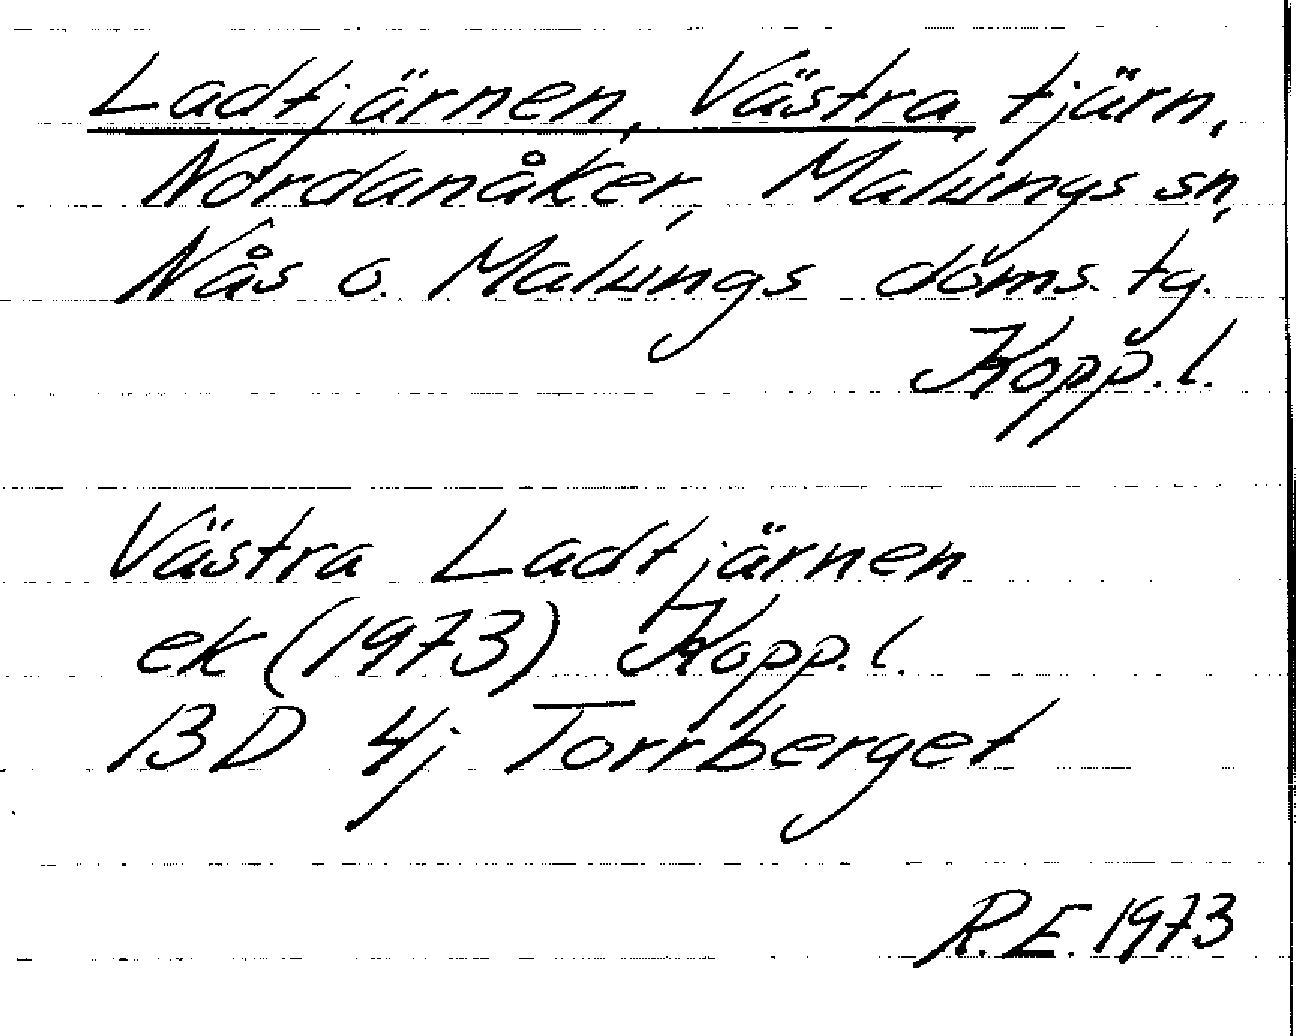 Ladtjärnen, Västra, tjärn,
Nordanåker, Malungs sn,
Nås o. Malungs doms. tg.
Kopp. l.
Västra Ladtjärnen
ek (1973) Kopp. l.
13D 4j Torrberget
R.E. 1973